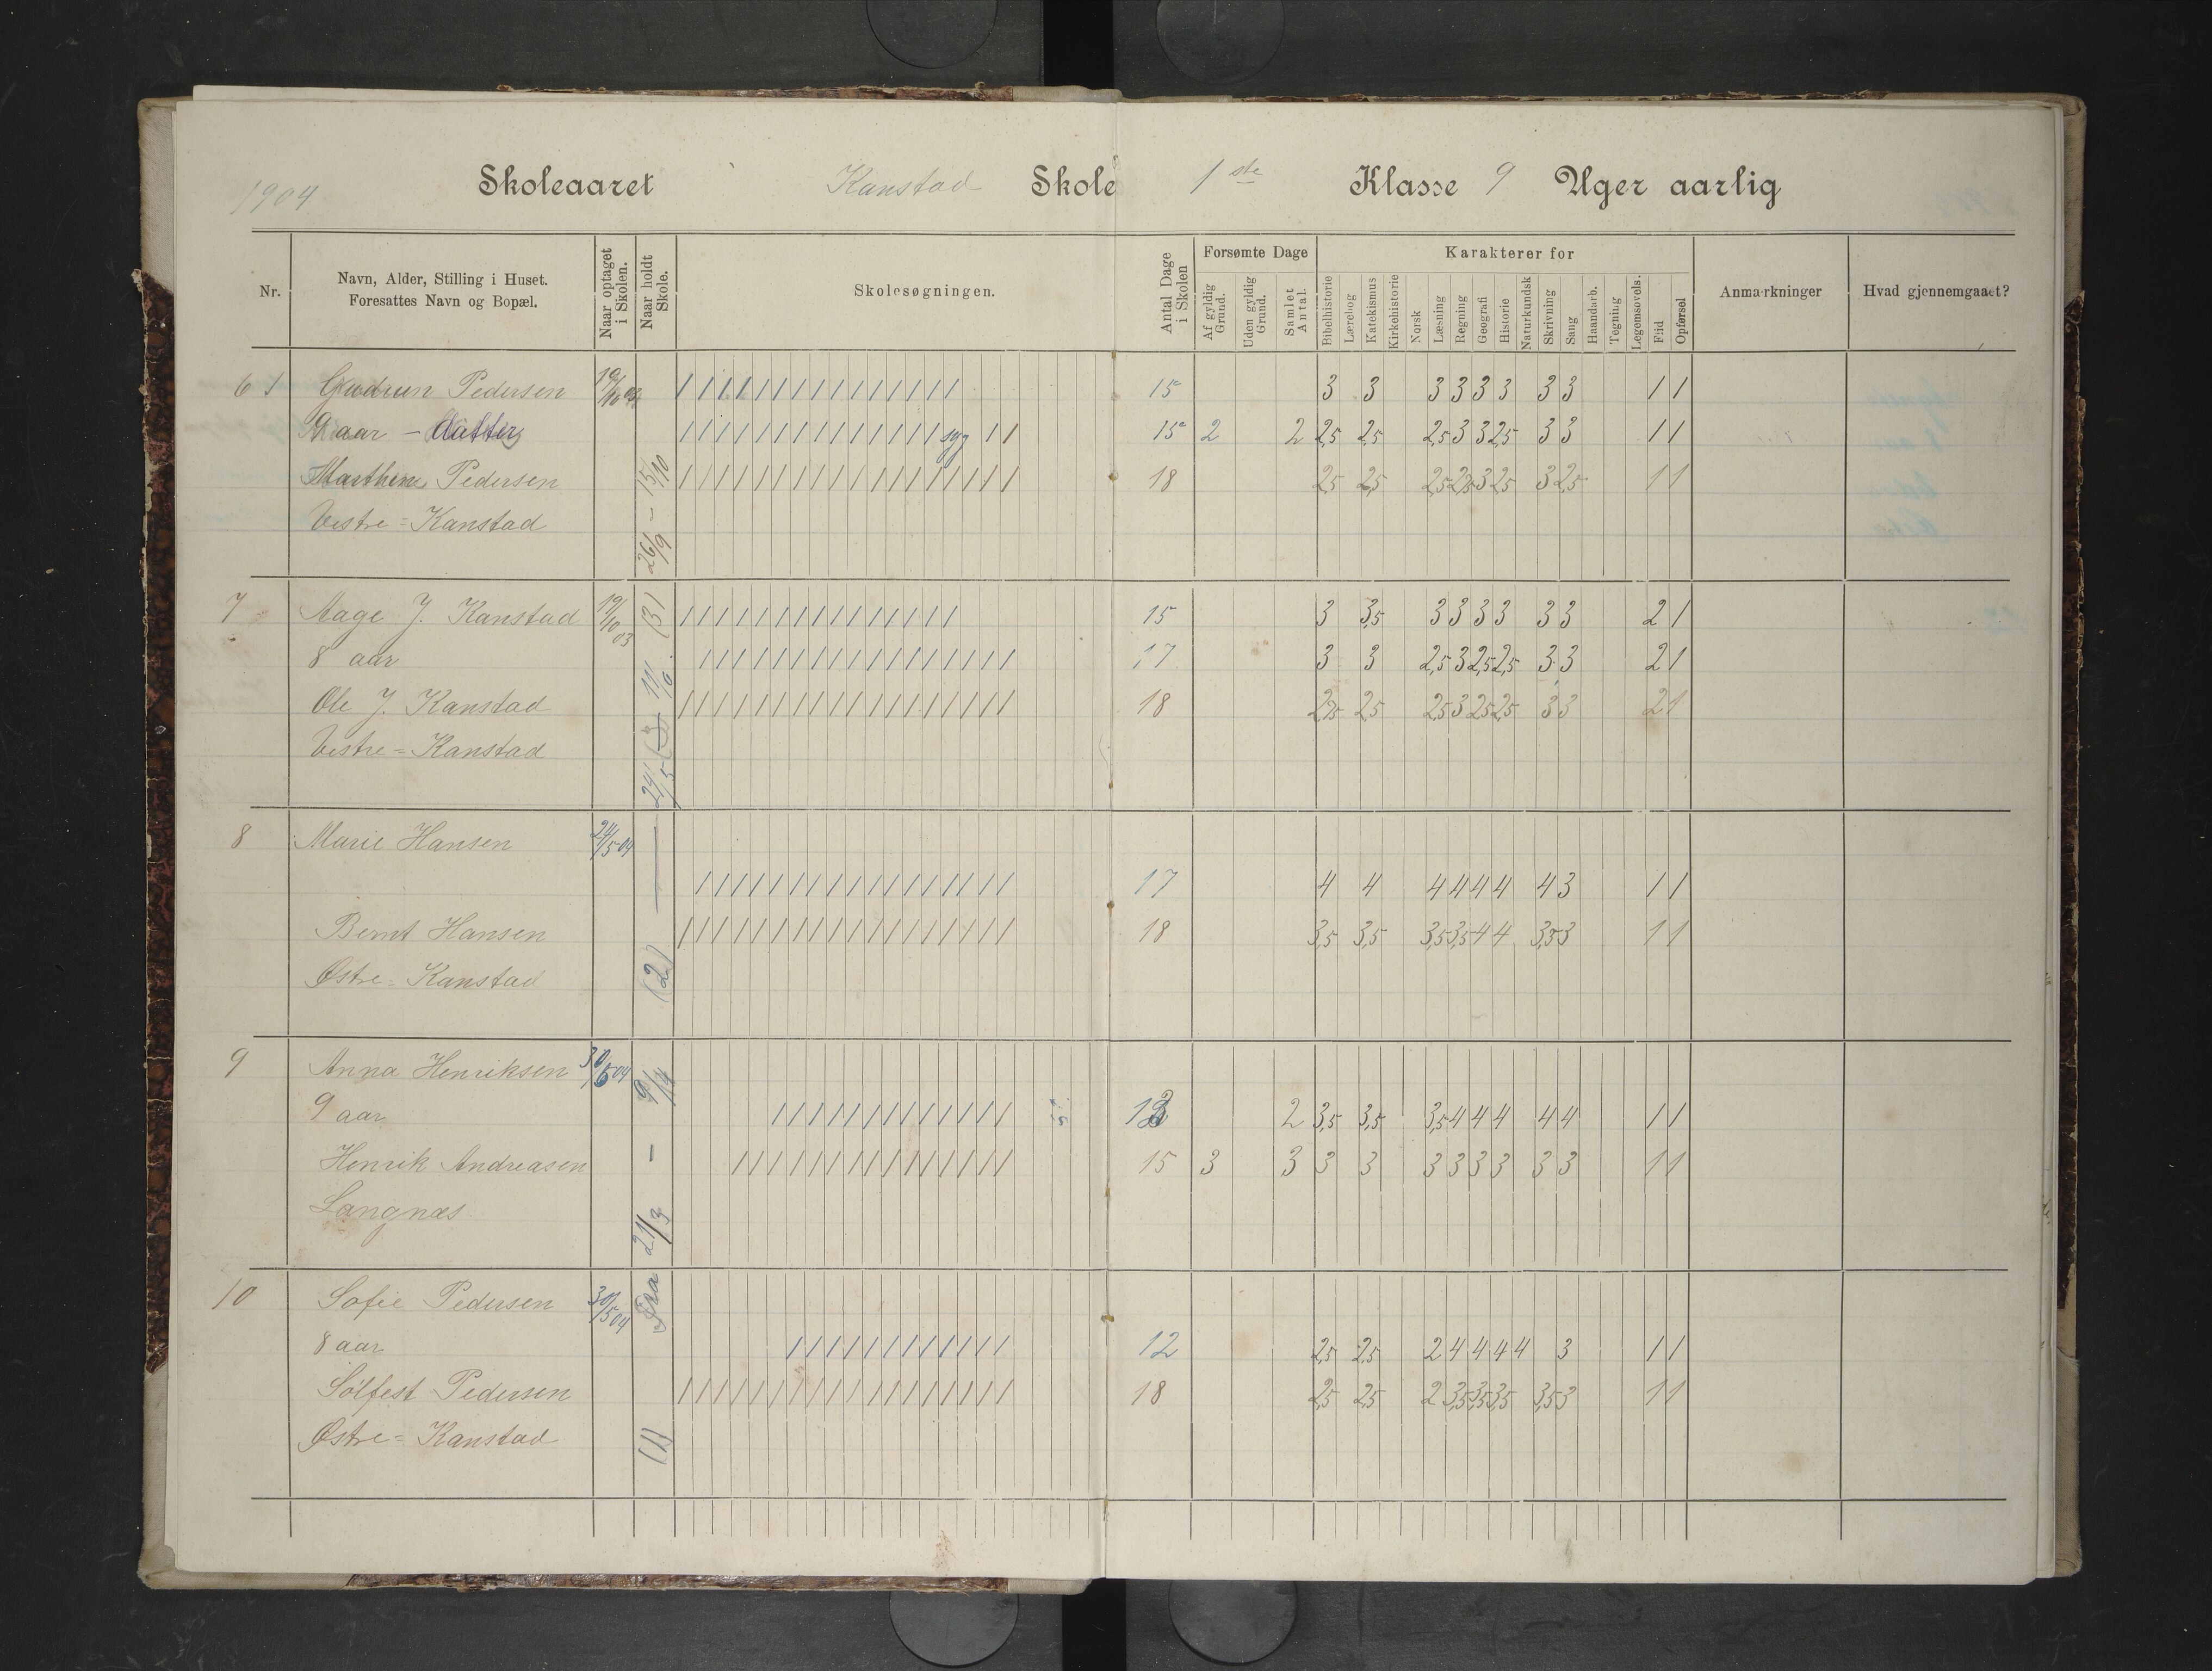 1904 Skoleaaret Kanstad Skole 1ste Klasse 9 Uger aarlig
Nr. Navn, Alder, Stilling i Huset. Foresattes Navn og Bopæl. Naar optaget i Skolen. Naar holdt Skole. Skolesøgningen. Antal Dage i Skolen Forsømte Dage Karakterer for Anmærkninger Hvad gjennemgaaet?
Af gyldig Grund. Uden gyldig Grund. Samlet Antal. Bibelhistorie Lærebog Katekismus Kirkehistorie Norsk Læsning Regning Geografi Historie Naturkundsk Skrivning Sang Haandarb. Tegning Legemsøvels. Flid Opførsel
6 Gudrun Pedersen 19/10 03 / / / / / / / / / / / / / / / 15 3 3 3 3 3 3 3 3 1 1
9 aar – datter / / / / / / / / / / / / / / syg / / 15 2 2 2,5 2,5 2,5 3 3 2,5 3 3 1 1
Marthin Pedersen / / / / / / / / / / / / / / / / / / 18 2,5 2,5 2,5 2,5 3 2,5 3 2,5 1 1
Vestre=Kanstad
26/9 – 15/10
7 Aage J. Kanstad 19/10 03 / / / / / / / / / / / / / / / 15 3 3,5 3 3 3 3 3 3 2 1
8 aar / / / / / / / / / / / / / / / / / 17 3 3 2,5 3 2,5 2,5 3 3 2 1
Ole J. Kanstad / / / / / / / / / / / / / / / / / / 18 2,5 2,5 2,5 3 2,5 2,5 3 3 2 1
Vestre=Kanstad
(3)
24/5 11/6
8 Marie Hansen 24/5 04
/ / / / / / / / / / / / / / / / / 17 4 4 4 4 4 4 4 3 1 1
Bernt Hansen / / / / / / / / / / / / / / / / / / 18 3,5 3,5 3,5 3,5 4 4 3,5 3 1 1
Østre=Kanstad
(2)
9 Anna Henriksen 30/5 04
9 aar / / / / / / / / / / / / / 13 2 3,5 3,5 3,5 4 4 4 4 4 1 1
Henrik Andreasen / / / / / / / / / / / / / / / 15 3 3 3 3 3 3 3 3 3 3 1 1
Langnæs
Fra 21/3 – 9/4
10 Sofie Pedersen 30/5 04
8 aar / / / / / / / / / / / / 12 2,5 2,5 2 4 4 4 4 3 1 1
Sölfest Pedersen / / / / / / / / / / / / / / / / / / 18 2,5 2,5 2 3,5 3,5 3,5 3,5 3 1 1
Østre=Kanstad
(1)